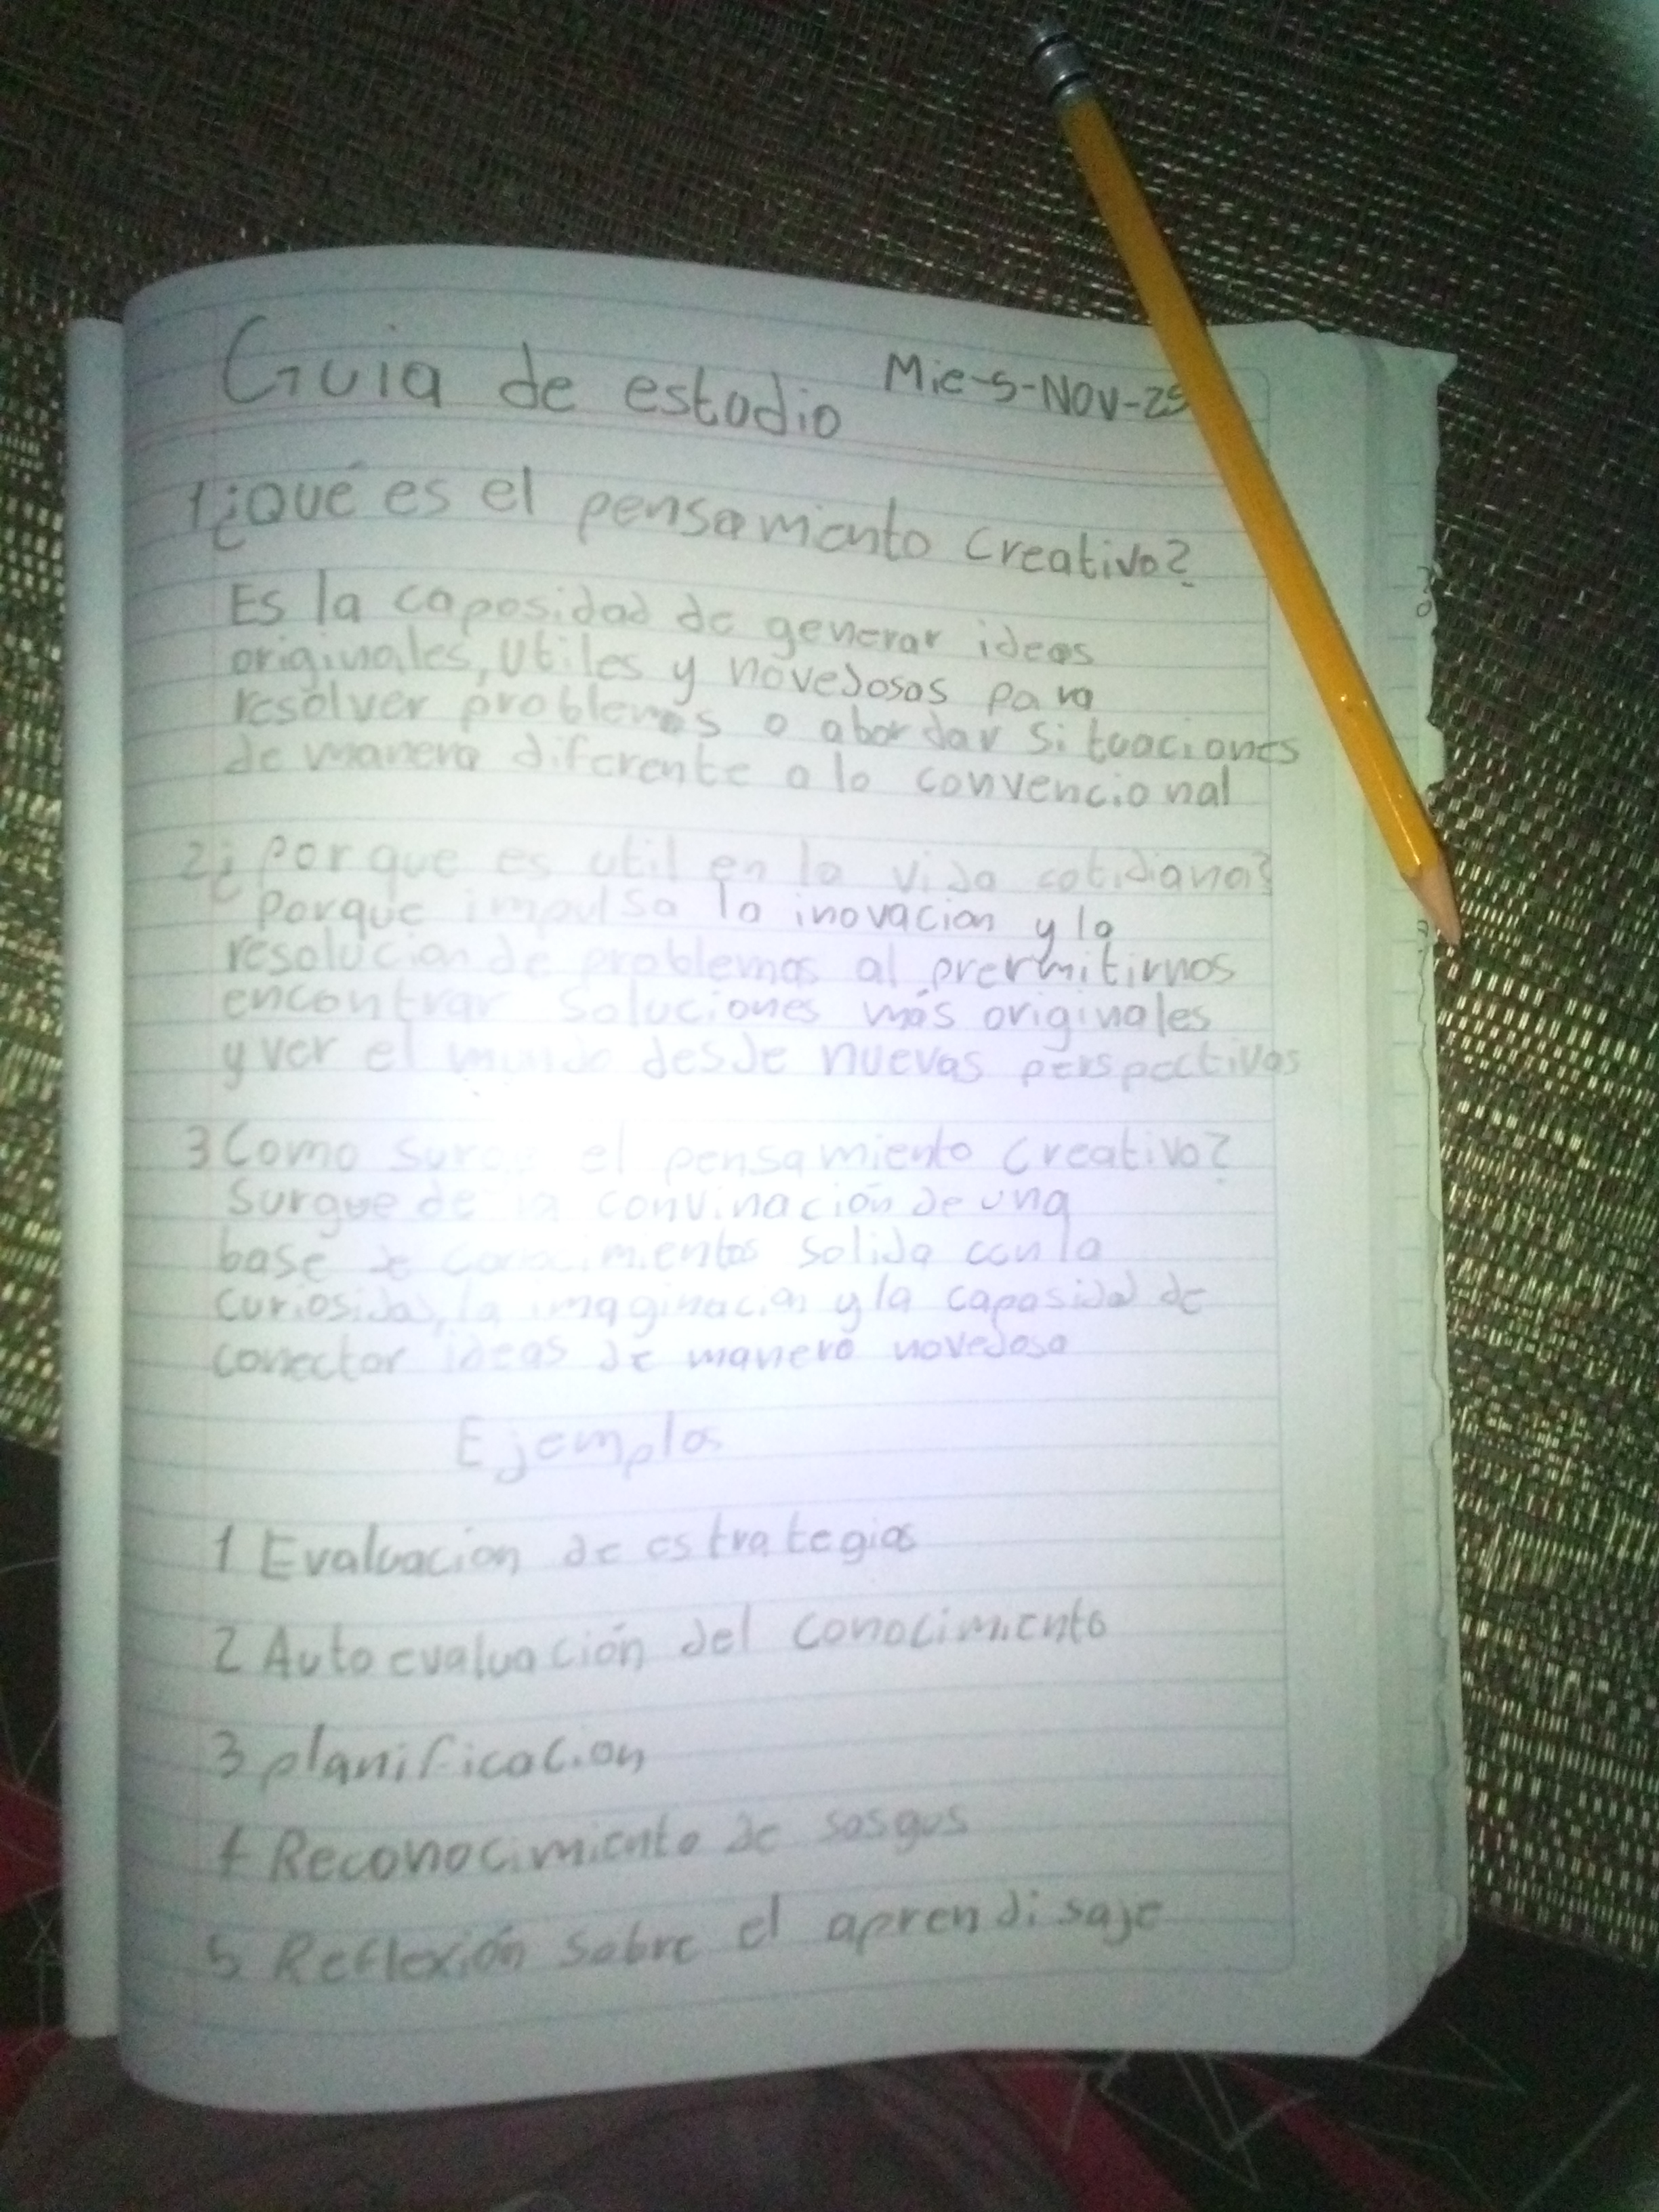 Guia de estudio Mie-5-Nov-25
1¿Qué es el pensamiento creativo?
Es la caposidad de generar ideas
originales, utiles y novedosas para
resolver problemas o abordar situaciones
de manera diferente a lo convencional
2¿Porque es util en la vida cotidiana?
Porque impulsa la inovacion y la
resolucion de problemas al prermitirnos
encontrar soluciones más originales
y ver el mundo desde nuevas perspectivas
3 Como surge el pensamiento creativo?
Surgue de la convinación de una
base de conocimientos solida con la
curiosidad, la imaginacion y la capasidad de
conectar ideas de manera novedosa
Ejemplos
1 Evaluacion de estrategias
2 Auto evaluación del conocimiento
3 planificacion
4 Reconocimiento de sasgos
5 Reflexión sobre el aprendisaje